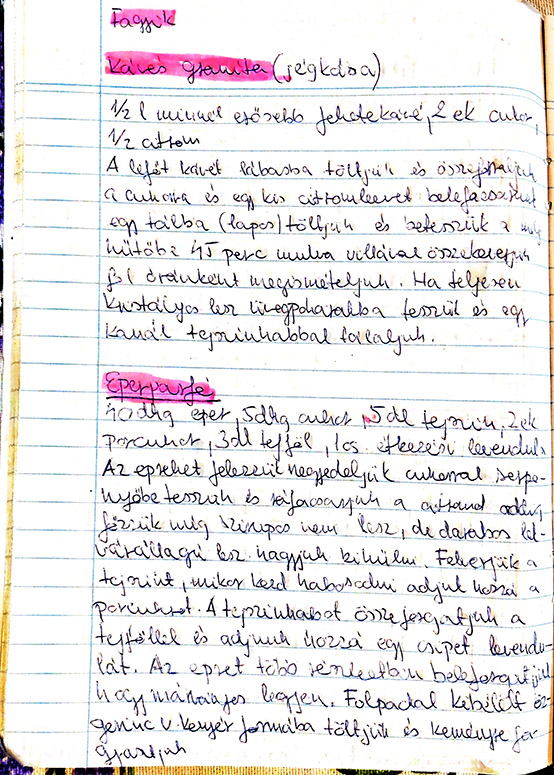 Fagyik
Kávés granita (jégkása)
1/2 l minnél erősebb feketekávé, 2 ek cukor,
1/2 citrom
A lefőt kávét lábasba töltjük és összeforraljuk
a cukorra és egy kis citromleevet belefacsarunk
egy tálba (lapos) töltjük és betesszük a mély
hűtőbe 45 perc mulva villával összekeverjük
fél óránként megismételjük. Ha teljesen
kristályos lesz üvegpoharakba tesszük és egy
kanál tejszinhabbal tálaljuk.
Eperparfé
40 dkg eper, 5dkg cukor, 5 dl tejszín, 2 ek
porcukor, 3dl tejföl, 1 cs étkezési levendula
Az epreket felezzük negyedeljük cukorral serpe-
nyőbe tesszük és ráfacsarjuk a citromot addig
főzzük míg szirupos nem lesz, de darabos lek-
várállagú lesz hagyjuk kihülni. Felverjük a
tejszint, mikor kezd habosodni adjuk hozzá a
porcukrot. A tejszinhabot összeforgatjuk a
tejföllel és adjunk hozzá egy csipet levendu-
lát. Az epret több részletben beleforgatjuk
hogy márványos legyen. Folpackal kibélelt őz-
gerinc v. kenyér formába töltjük és keményre fa-
gyasztjuk